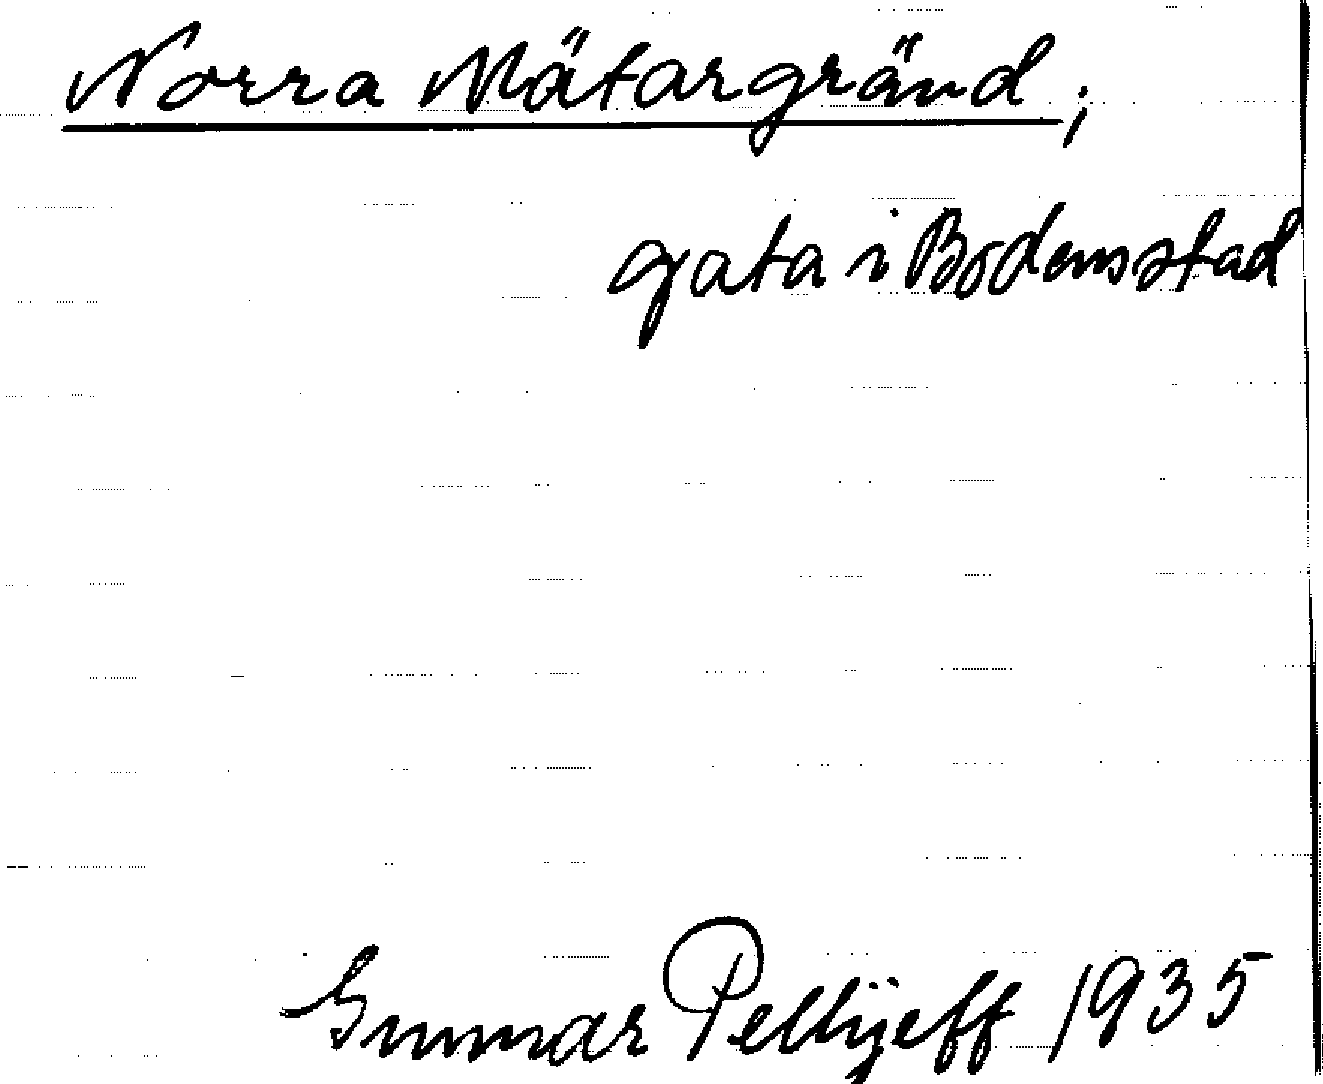 Norra Mätargränd;
gata i Bodens stad
Gunnar Pellijeff 1935